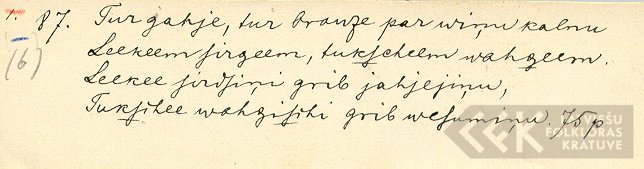 1. 87. Tur gahje, tur brauze par wiņu kalnu
(6) Leekeem sirgeem, tukscheem wahģeem.
Leekee sirdsiņi grib jahjejiņu,
Tukschee wahģischi grib wesumiņu. 75 p
LATVIEŠU
FOLKLORAS
KRĀTUVE